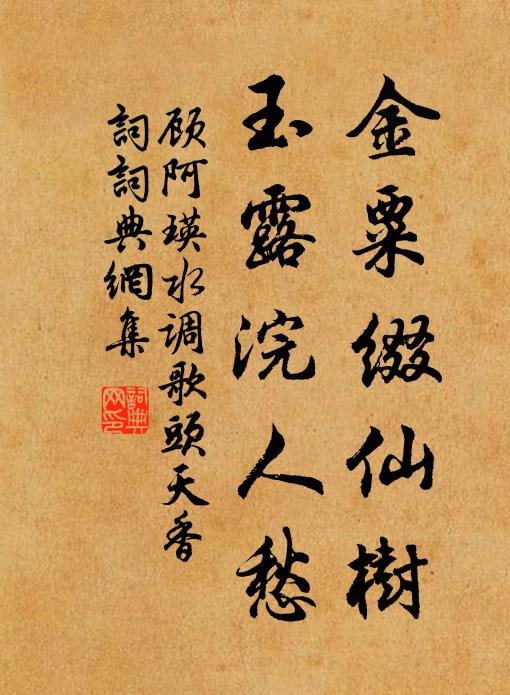 金粟缀仙樹
玉露浣人愁
顾阿瑛水调歌頭天香
詞詞典網集
詞典網印